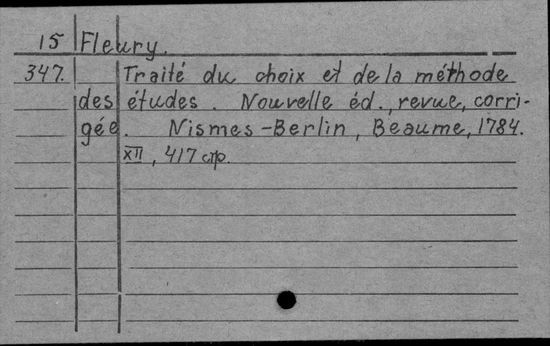 15 Fleury.
347. Traité du choix et de la méthode
des études. Nouvelle éd., revue, corri-
gée. Nismes-Berlin, Beaume, 1784.
XII, 417 стр.